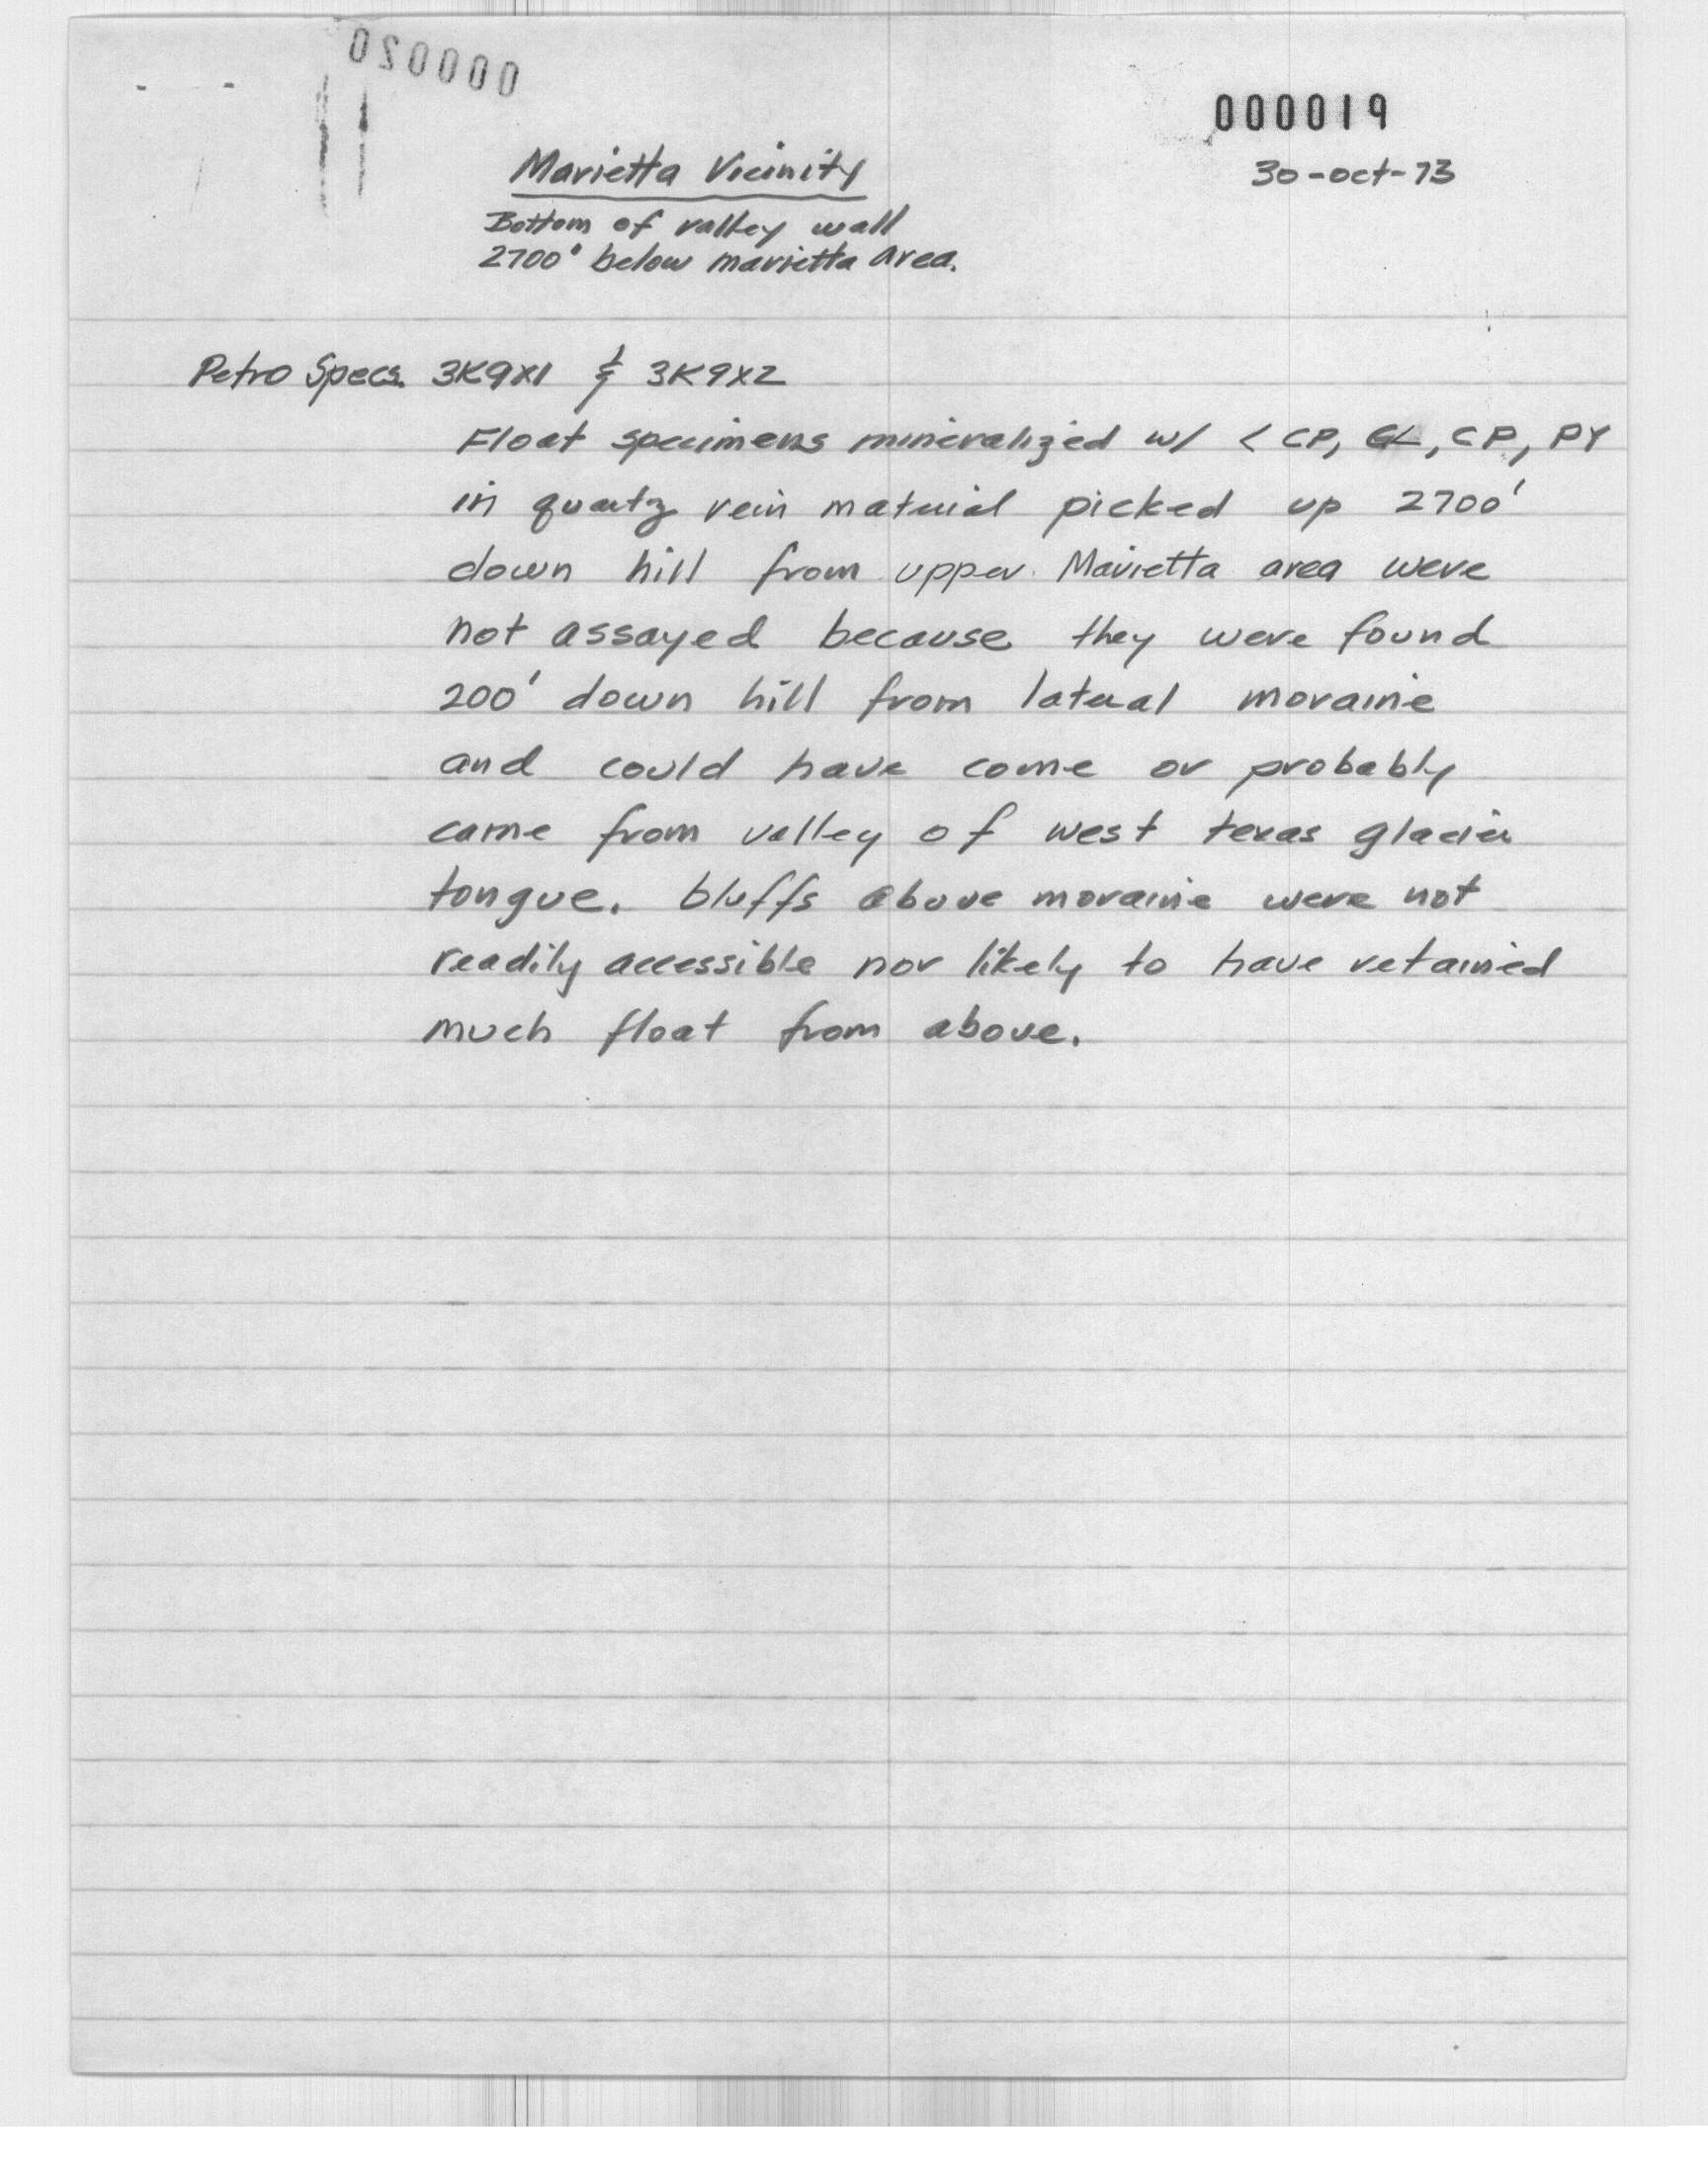 000020
000019
30-oct-73
Marietta Vicinity
Bottom of valley wall
2700' below marietta area.
Petro Specs. 3K9X1 & 3K9X2
Float specimens mineralized w/ < CP, GL, CP, PY
in quartz vein material picked up 2700'
down hill from upper Marietta area were
not assayed because they were found
200' down hill from lateral moraine
and could have come or probably
came from valley of west texas glacier
tongue. bluffs above moraine were not
readily accessible nor likely to have retained
much float from above.